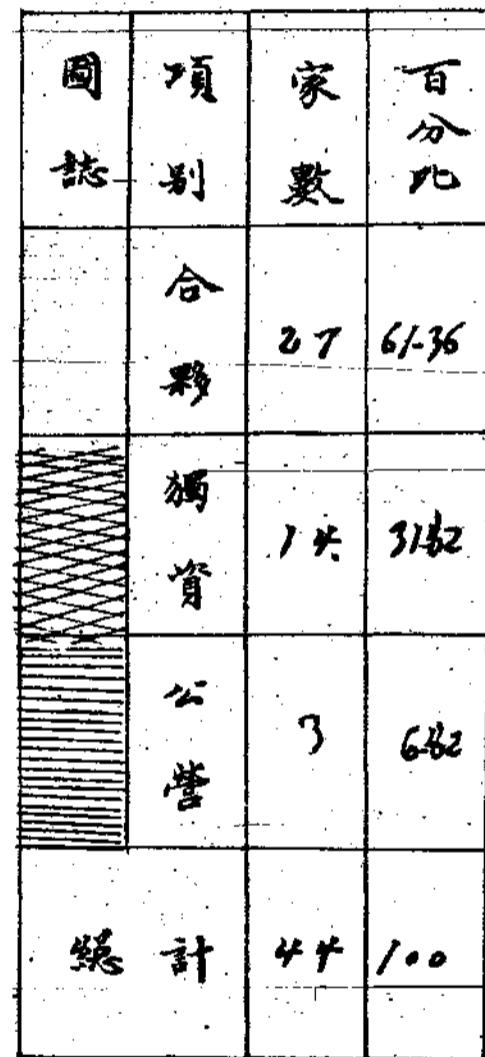 圖誌 項別 家數 百分比
合夥 27 61.36
獨資 14 31.82
公營 3 6.82
總計 44 100